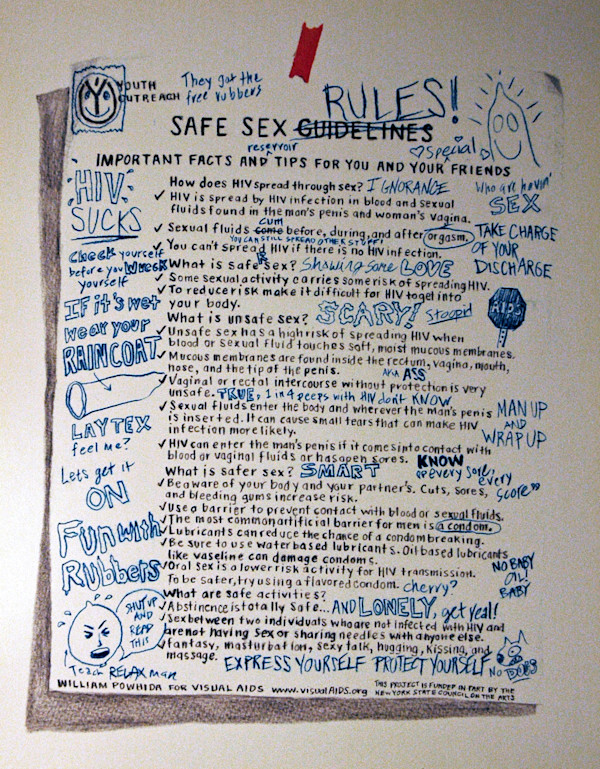 YOUTH
OUTREACH
They got the
free rubbers
RULES!
SAFE SEX GUIDELINES
reservoir
♡ special
IMPORTANT FACTS AND TIPS FOR YOU AND YOUR FRIENDS
HIV
SUCKS
How does HIV spread through sex? IGNORANCE
who are havin'
SEX
✓ HIV is spread by HIV infection in blood and sexual
fluids found in the man's penis and woman's vagina.
CUM
✓ Sexual fluids come before, during, and after orgasm.
TAKE CHARGE
OF YOUR
DISCHARGE
YOU CAN STILL SPREAD OTHER STUFF!
✓ You can't spread HIV if there is no HIV infection.
check yourself
before you WRECK
yourself
What is safe sex? Showing some LOVE
✓ Some sexual activity carries some risk of spreading HIV.
✓ To reduce risk make it difficult for HIV to get into
your body.
AIDS
IF it's wet
wear your
RAINCOAT
What is unsafe sex? SCARY! stoopid
✓ Unsafe sex has a high risk of spreading HIV when
blood or sexual fluid touches soft, moist mucous membranes.
✓ Mucous membranes are found inside the rectum, vagina, mouth,
nose, and the tip of the penis. AKA ASS
✓ Vaginal or rectal intercourse without protection is very
unsafe. TRUE, 1 in 4 peeps with HIV don't KNOW
✓ Sexual fluids enter the body and wherever the man's penis
is inserted. It can cause small tears that can make HIV
infection more likely.
MAN UP
AND
WRAP UP
LAYTEX
feel me?
✓ HIV can enter the man's penis if it comes into contact with
blood or vaginal fluids or has open sores. KNOW
"every sore, every
score"
Lets get it
ON
What is safer sex? SMART
✓ Be aware of your body and your partner's. Cuts, sores,
and bleeding gums increase risk.
✓ Use a barrier to prevent contact with blood or sexual fluids.
✓ The most common artificial barrier for men is a condom.
FUN with
Rubbers
✓ Lubricants can reduce the chance of a condom breaking.
✓ Be sure to use water based lubricants. Oil based lubricants
like vaseline can damage condoms.
NO BABY
OIL!
BABY
✓ Oral sex is a lower risk activity for HIV transmission.
To be safer, try using a flavored condom. cherry?
What are safe activities?
✓ Abstinence is totally safe... AND LONELY, get real!
✓ Sex between two individuals who are not infected with HIV and
are not having sex or sharing needles with anyone else.
✓ Fantasy, masturbation, sexy talk, hugging, kissing, and
massage. EXPRESS YOURSELF PROTECT YOURSELF
NO DOGS
SHUT UP
AND
READ
THIS
Teach RELAX man
WILLIAM POWHIDA FOR VISUAL AIDS www.visualAIDS.org
THIS PROJECT IS FUNDED IN PART BY THE
NEW YORK STATE COUNCIL ON THE ARTS